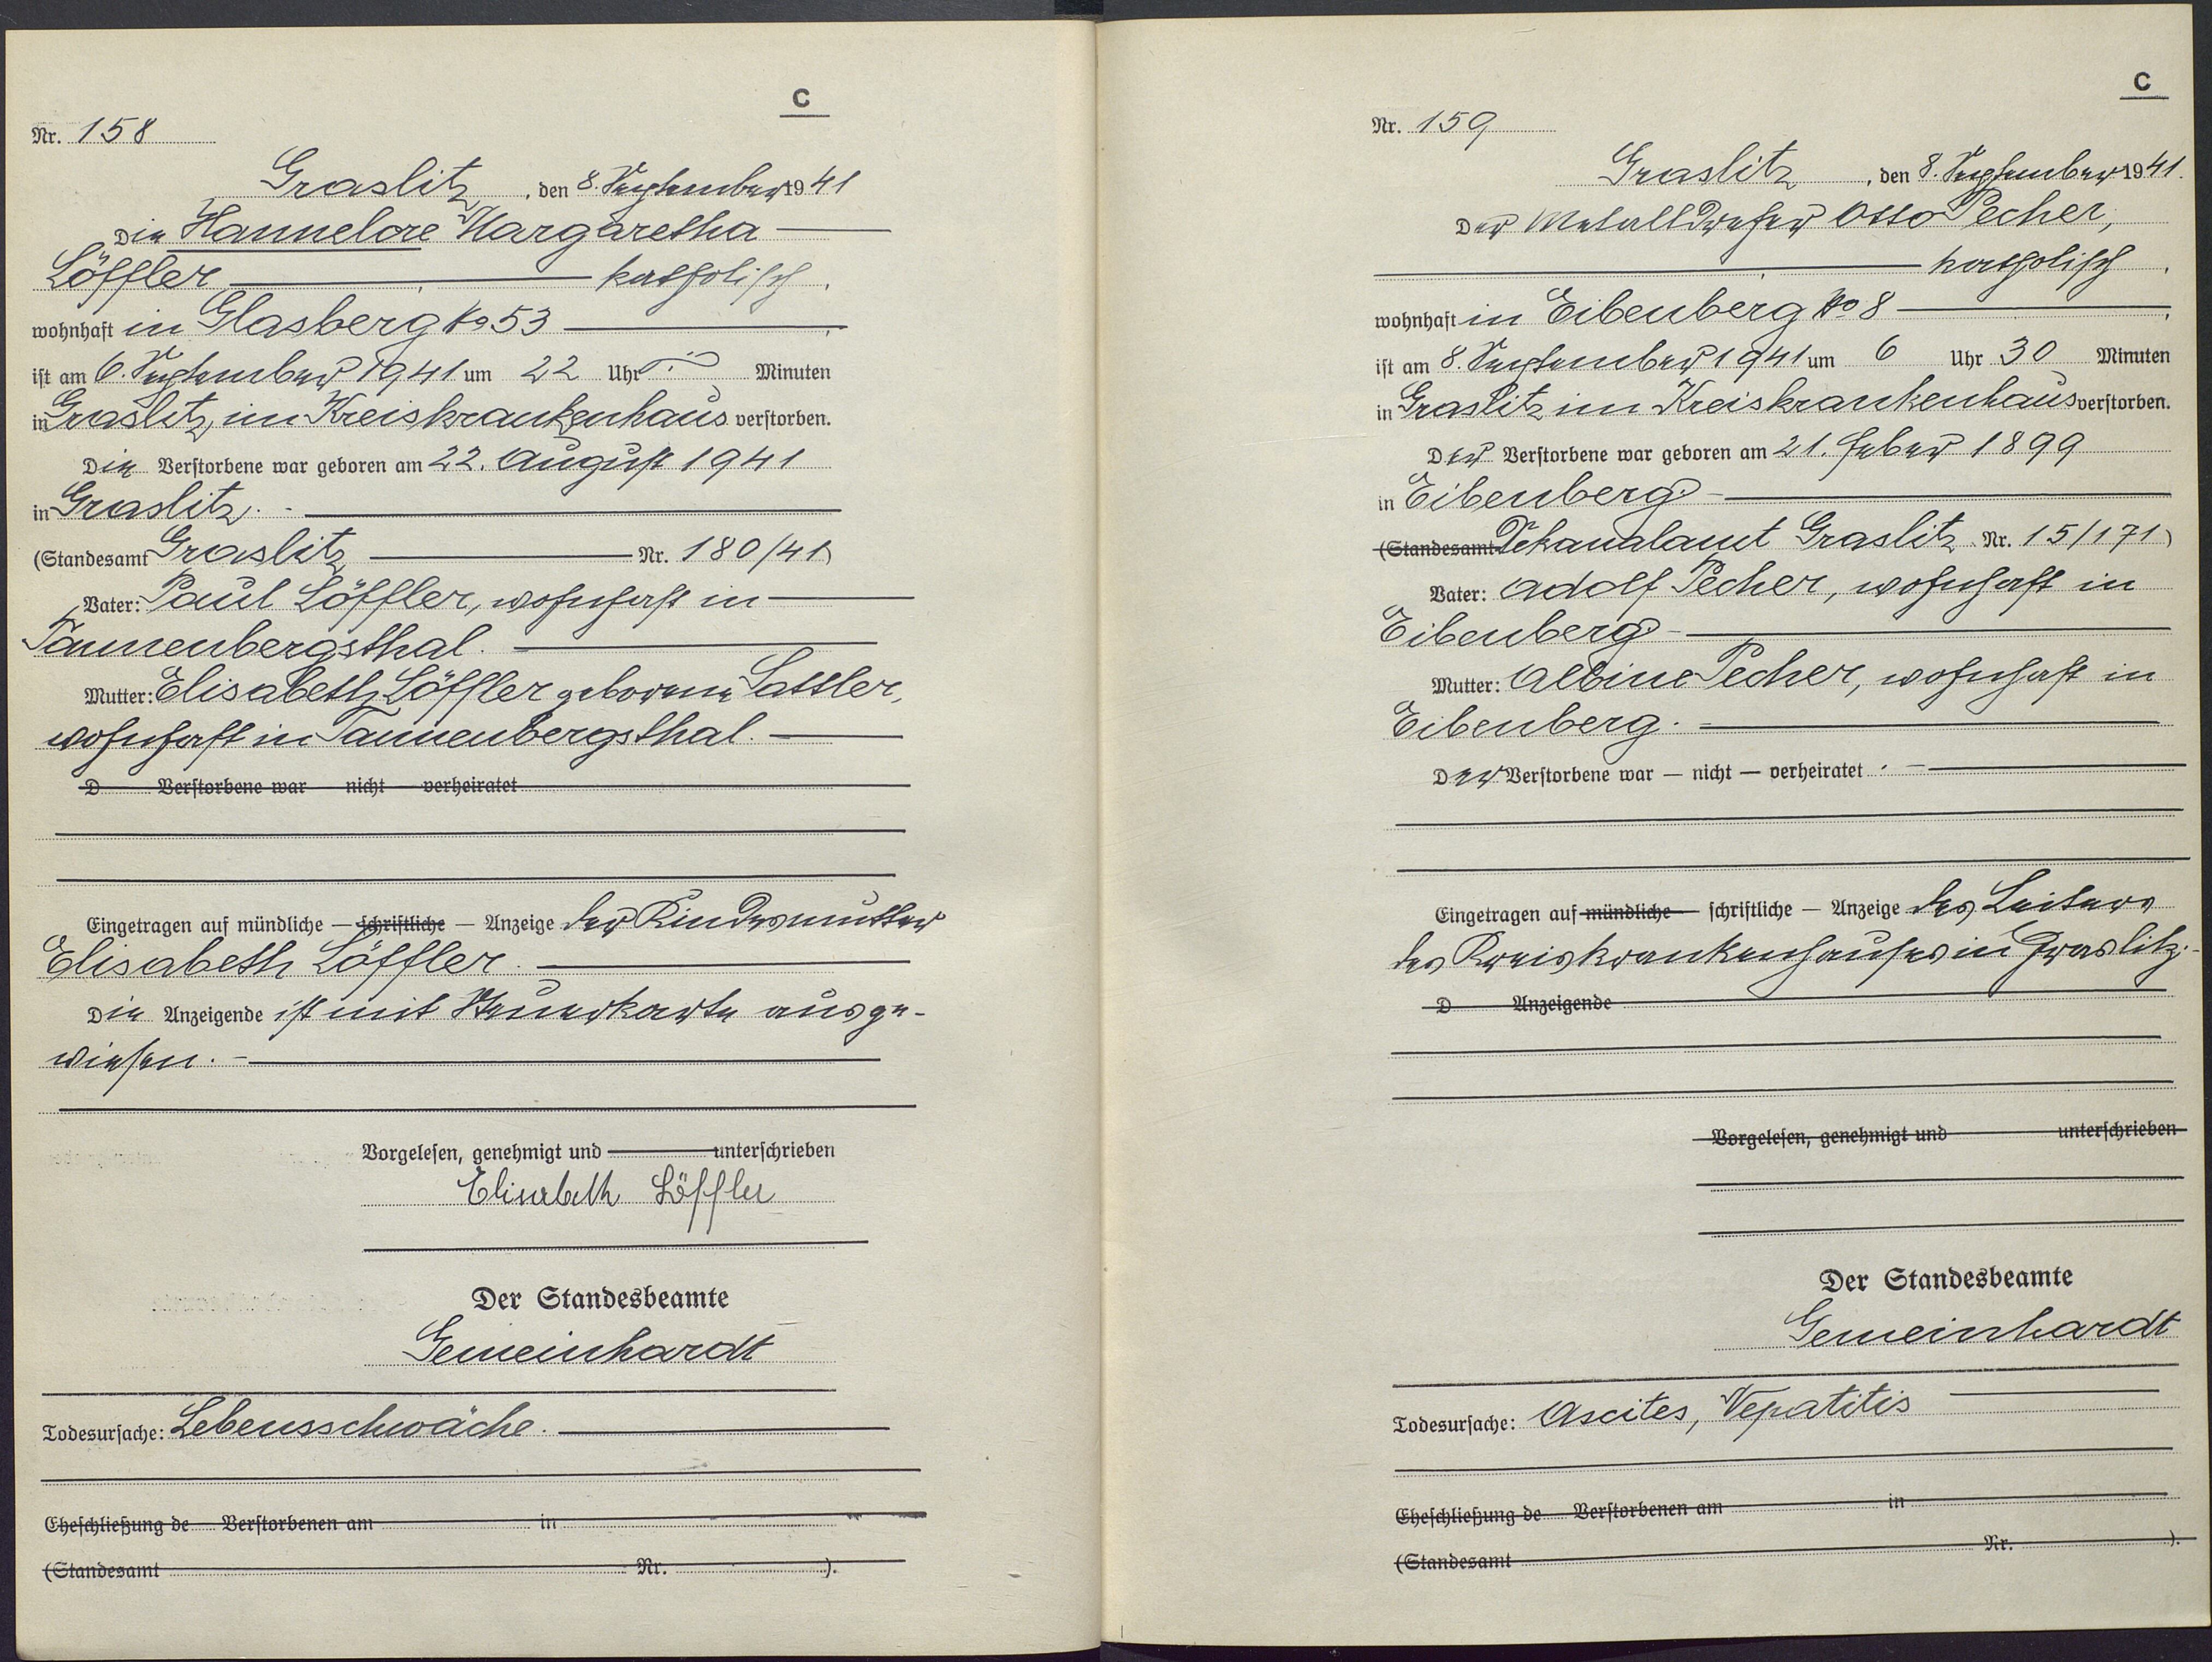 C
Nr. 158
Graslitz, den 8. September 1941
Die Hannelore Margaretha
Löffler, katholisch,
wohnhaft in Glasberg No 53,
ist am 6. September 1941 um 22 Uhr Minuten
in Graslitz, im Kreiskrankenhaus verstorben.
Die Verstorbene war geboren am 22. August 1941
in Graslitz.
(Standesamt Graslitz Nr. 180/41)
Vater: Paul Löffler, wohnhaft in
Tannenbergsthal.
Mutter: Elisabeth Löffler geborene Sattler,
wohnhaft in Tannenbergsthal.
D Verstorbene war nicht verheiratet
Eingetragen auf mündliche — schriftliche — Anzeige der Kindesmutter
Elisabeth Löffler.
Die Anzeigende ist mit Steuerkarte ausge-
wiesen.
Vorgelesen, genehmigt und unterschrieben
Elisabeth Löffler
Der Standesbeamte
Gemeinhardt
Todesursache: Lebensschwäche.
Eheschließung de Verstorbenen am in
(Standesamt Nr. ).
C
Nr. 159
Graslitz, den 8. September 1941.
Der Metalldreher Otto Pecher,
, katholisch,
wohnhaft in Eibenberg No 8,
ist am 8. September 1941 um 6 Uhr 30 Minuten
in Graslitz im Kreiskrankenhaus verstorben.
Der Verstorbene war geboren am 21. Feber 1899
in Eibenberg.
(Standesamt Dekanalamt Graslitz Nr. 15/171)
Vater: Adolf Pecher, wohnhaft in
Eibenberg.
Mutter: Albine Pecher, wohnhaft in
Eibenberg.
Der Verstorbene war — nicht — verheiratet.
Eingetragen auf mündliche schriftliche — Anzeige des Leiters
des Kreiskrankenhauses in Graslitz.
D Anzeigende
Vorgelesen, genehmigt und unterschrieben
Der Standesbeamte
Gemeinhardt
Todesursache: Ascites, Hepatitis
Eheschließung de Verstorbenen am in
(Standesamt Nr. ).